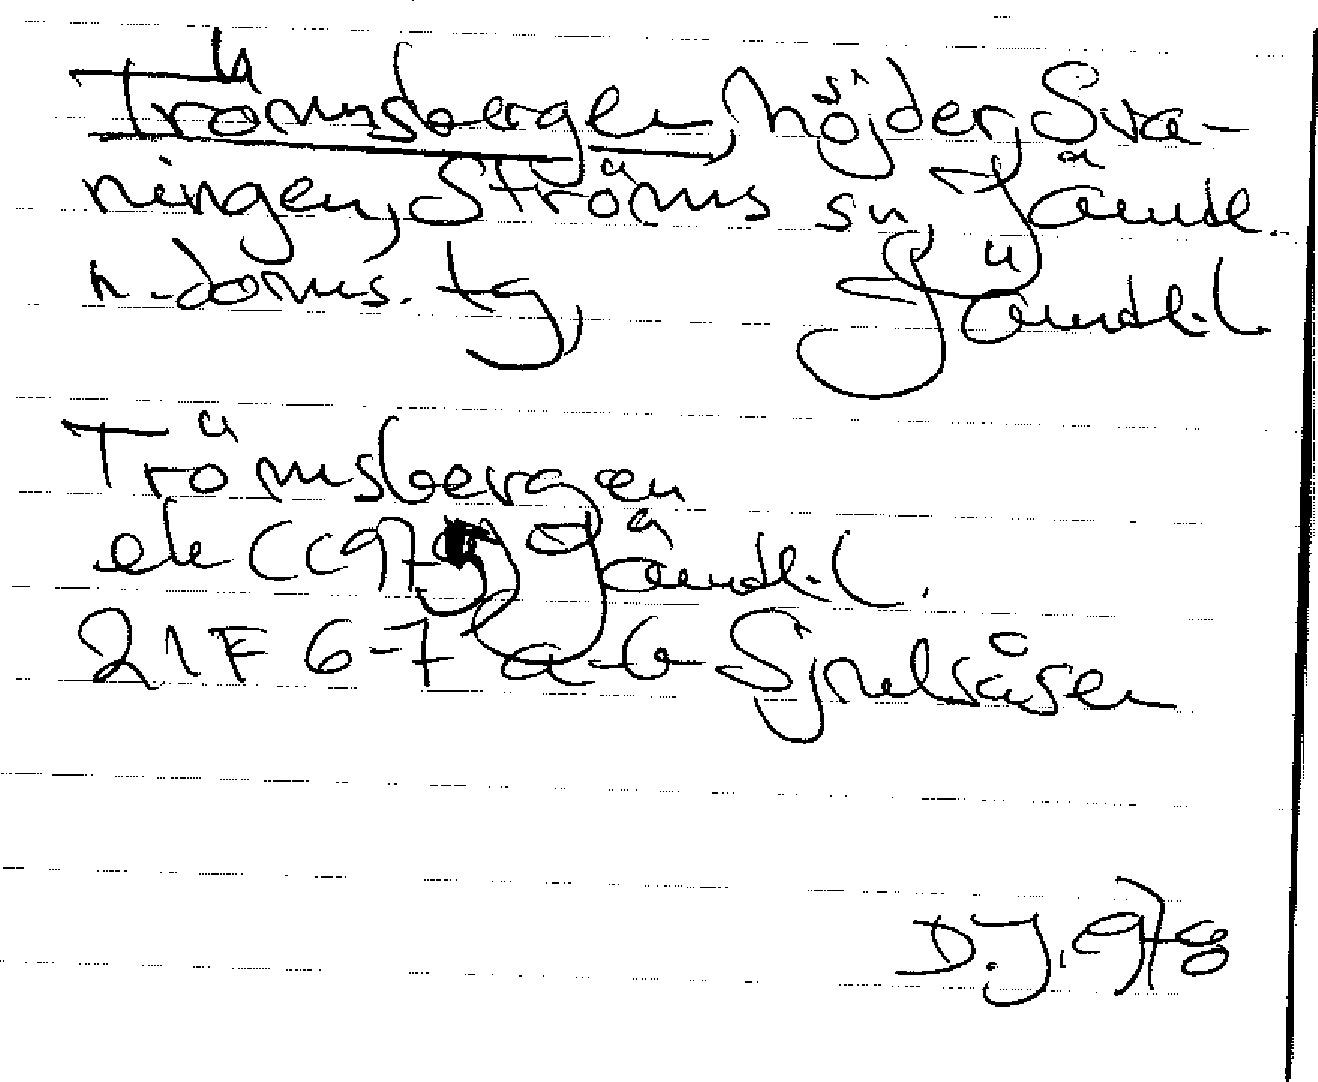 Trömsbergen, höjder, Sva-
ningen, Ströms sn, Jämtl.
n. doms. tg, Jämtl. l.
Trömsbergen
ek (1975) Jämtl. l.
21F 6-7 a-b Sjoulsåsen
D.J. 1978